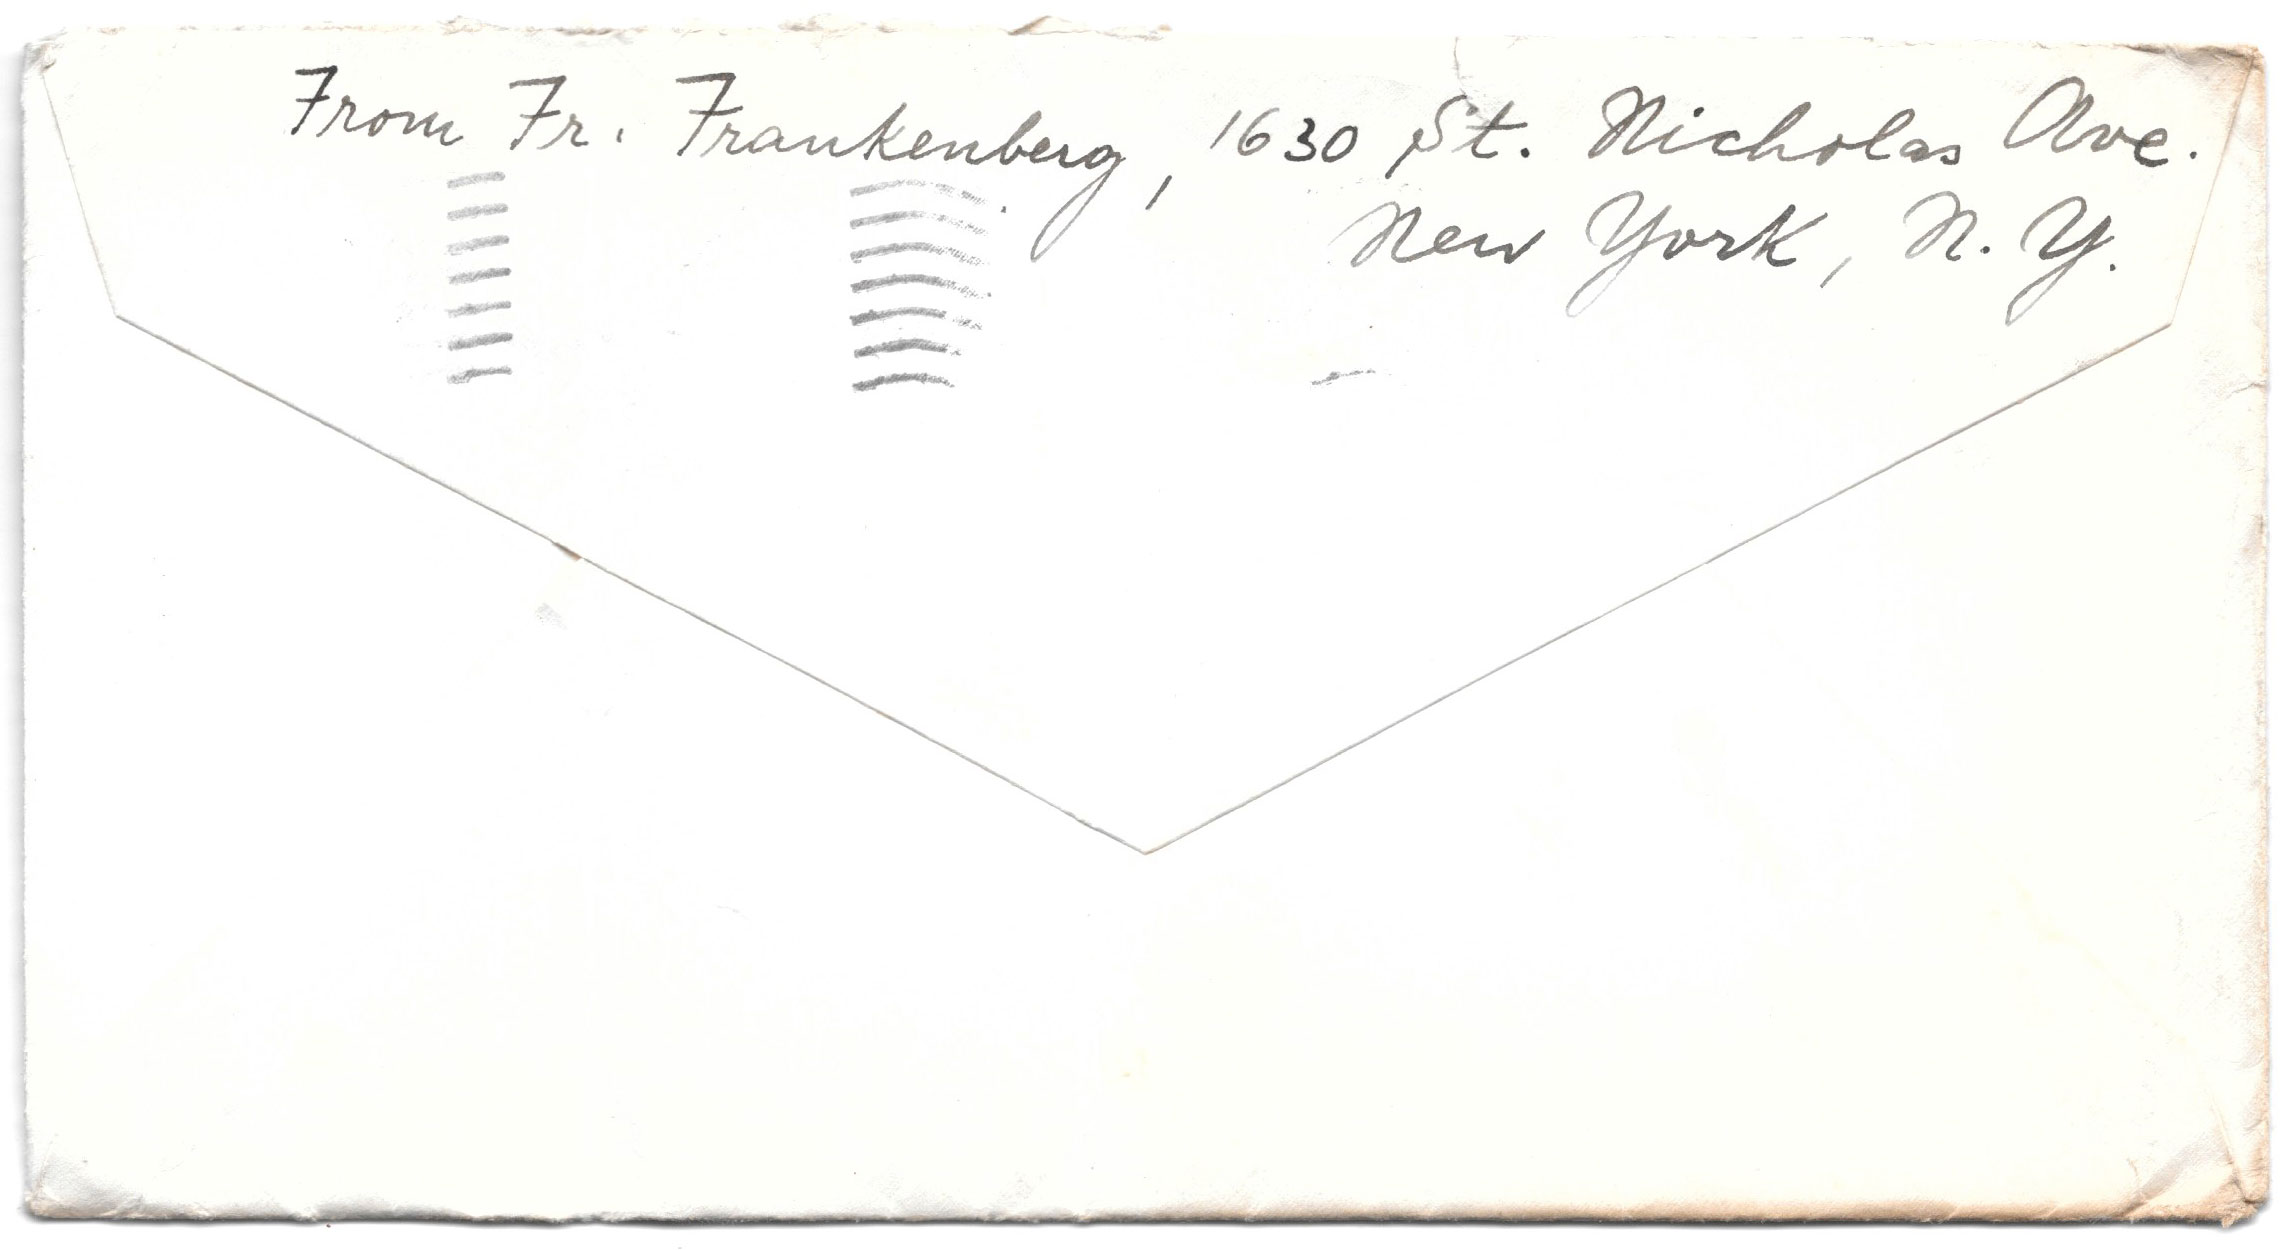 From Fr. Frankenberg, 1630 St. Nicholas Ave.
New York, N. Y.